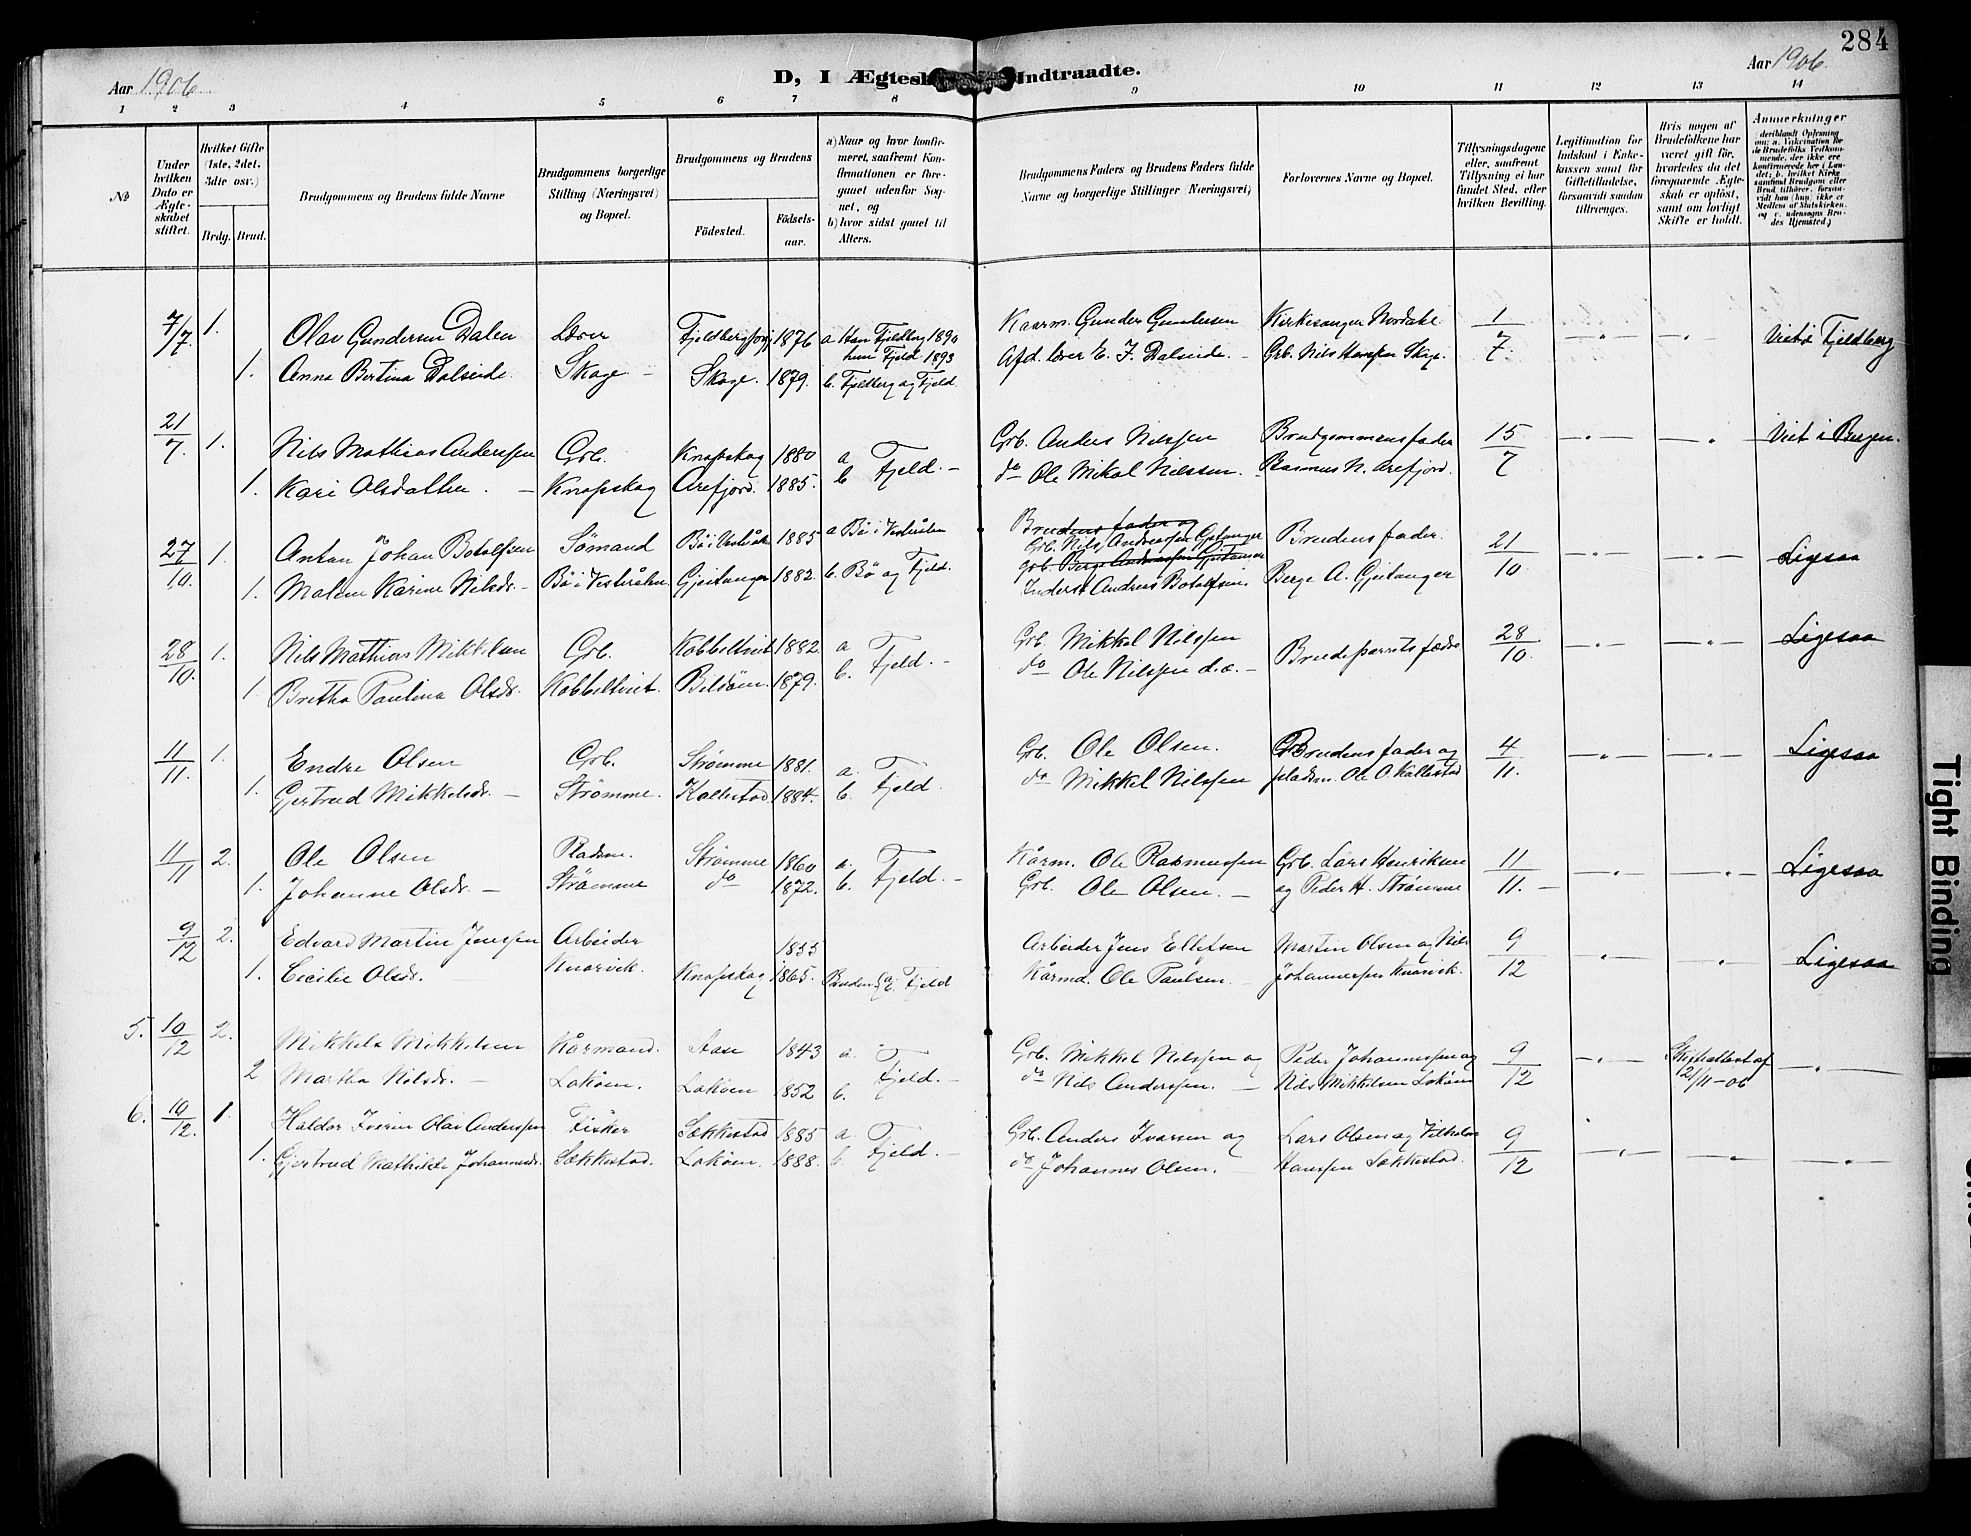 284
Aar 1906 D, I Ægtesk Indtraadte. Aar 1906.
1 2 3 4 5 6 7 8 9 10 11 12 13 14
No
Under hvilken Dato er Ægteskabet stiftet.
Hvilket Gifte (1ste, 2det, 3die osv.)
Brdg. Brud.
Brudgommens og Brudens fulde Navne
Brudgommens borgerlige Stilling (Næringsvei) og Bopæl.
Brudgommens og Brudens
Födested. Födselsaar.
a) Naar og hvor konfirmeret, saafremt Konfirmationen er foregaaet udenfor Sognet, og
b) hvor sidst gaaet til Alters.
Brudgommens Faders og Brudens Faders fulde Navne og borgerlige Stillinger Næringsvei)
Forlovernes Navne og Bopæl.
Tillysningsdagene eller, saafremt Tillysning ei har fundet Sted, efter hvilken Bevilling.
Legitimation for Indskud i Enkekassen samt for Giftetilladelse, forsaavidt saadan tiltrænges.
Hvis nogen af Brudefolkene har været gift för, hvorledes da det foregaaende Ægteskab er oplöst, samt om lovligt Skifte er holdt.
Anmerkninger
7/7 1. Olav Gundersen Dalen Lærer 1876 a Han Fjeldberg 1890 Kaarm. Gunder Gundersen Kirkesanger Nordahl 1/7 Viet i Fjeldberg
hun Fjeld 1893
1. Anna Bertina Dalseide. Skage Skage. 1879. b. Fjelberg og Fjeld. Afd. lærer E. J. Dalseide. Grb. Nils Hanssen Skge.
21/7. 1. Nils Mathias Anderssen Grb. Knapskog 1880 a Fjeld. Grb. Anders Nilssen Brudgommens fader 15/7 Viet i Bergen.
1. Kari Olsdatter. Knapskog Arefjord. 1885. b do Ole Mikal Nilssen. Rasmus N. Arefjord.
Brudens fader og
27/10. 1. Antan Johan Botolfsen Sømand Bø i Vesteraalen 1885 a Bø i Vesterålen Grb. Nils Andreassen Gjetanger Brudens fader. 21/10 Ligesaa
Grb. Berge Andreassen Gjetanger
1. Malene Karine Nilsdr. Bø i Vesterålen Gjeitanger 1882. b. Bø og Fjeld. Inderst Andreas Botolfsen. Berge A. Gjetanger
28/10. 1. Nils Mathias Mikkelsen Grb. Kobbeltveit 1882 a Fjeld. Grb. Mikkel Nilssen Brudeparrets fædre 28/10. Ligesaa
1. Bretha Paulina Olsdr. Kobbeltveit. Bildøen. 1879. b. do Ole Nilssen d.æ.
11/11. 1. Endre Olsen Grb. Strømme 1881. a. Fjeld. Grb. Ole Olsen. Brudens fader og 4/11. Ligesaa
1. Gertrud Mikkelsdr. Strømme. Kallestad 1884. b. do Mikkel Nilssen pladsm. Ole O. Kallestad
11/11 2. Ole Olsen Pladsm. Strømme 1860 a. Fjeld. Kårm. Ole Rasmussen Grb. Lars Henriksen 11/11. Ligesaa
1. Johanne Olsdr. Strømme do 1872. b. Grb. Ole Olsen. og Peder H. Strømme
9/12 2. Edvard Martin Jenssen Arbeider 1855 Arbeider Jens Ellefsen Martin Olsen og Nils 9/12 Ligesaa
1. Cecilie Olsdr. Knarvik. Knapskog 1865. Bruden a. b. Fjeld Kårmd. Ole Paulsen. Johannessen Knarvik.
5. 10/12 2. Mikkel Mikkelsen Kårmand. Aase 1843 a. Fjeld. Grb. Mikkel Nilssen og Peder Johannessen og 9/12 Skifteattest af
2 Martha Nilsdr. Lokøen. Lokøen 1852 b. do Nils Anderssen. Nils Mikkelsen Lokøen 21/11-06
6. 10/12. 1. Haldor Iverin Olai Anderssen Fisker Sækkestad 1885 a Fjeld. Grb. Anders Ivarsen og Lars Olsen og Vilhelm 9/12
1. Gjertrud Mathilde Johannesdr. Sækkestad. Lokøen. 1888. b. do Johannes Olsen. Hanssen Sækkestad.
Tight Binding